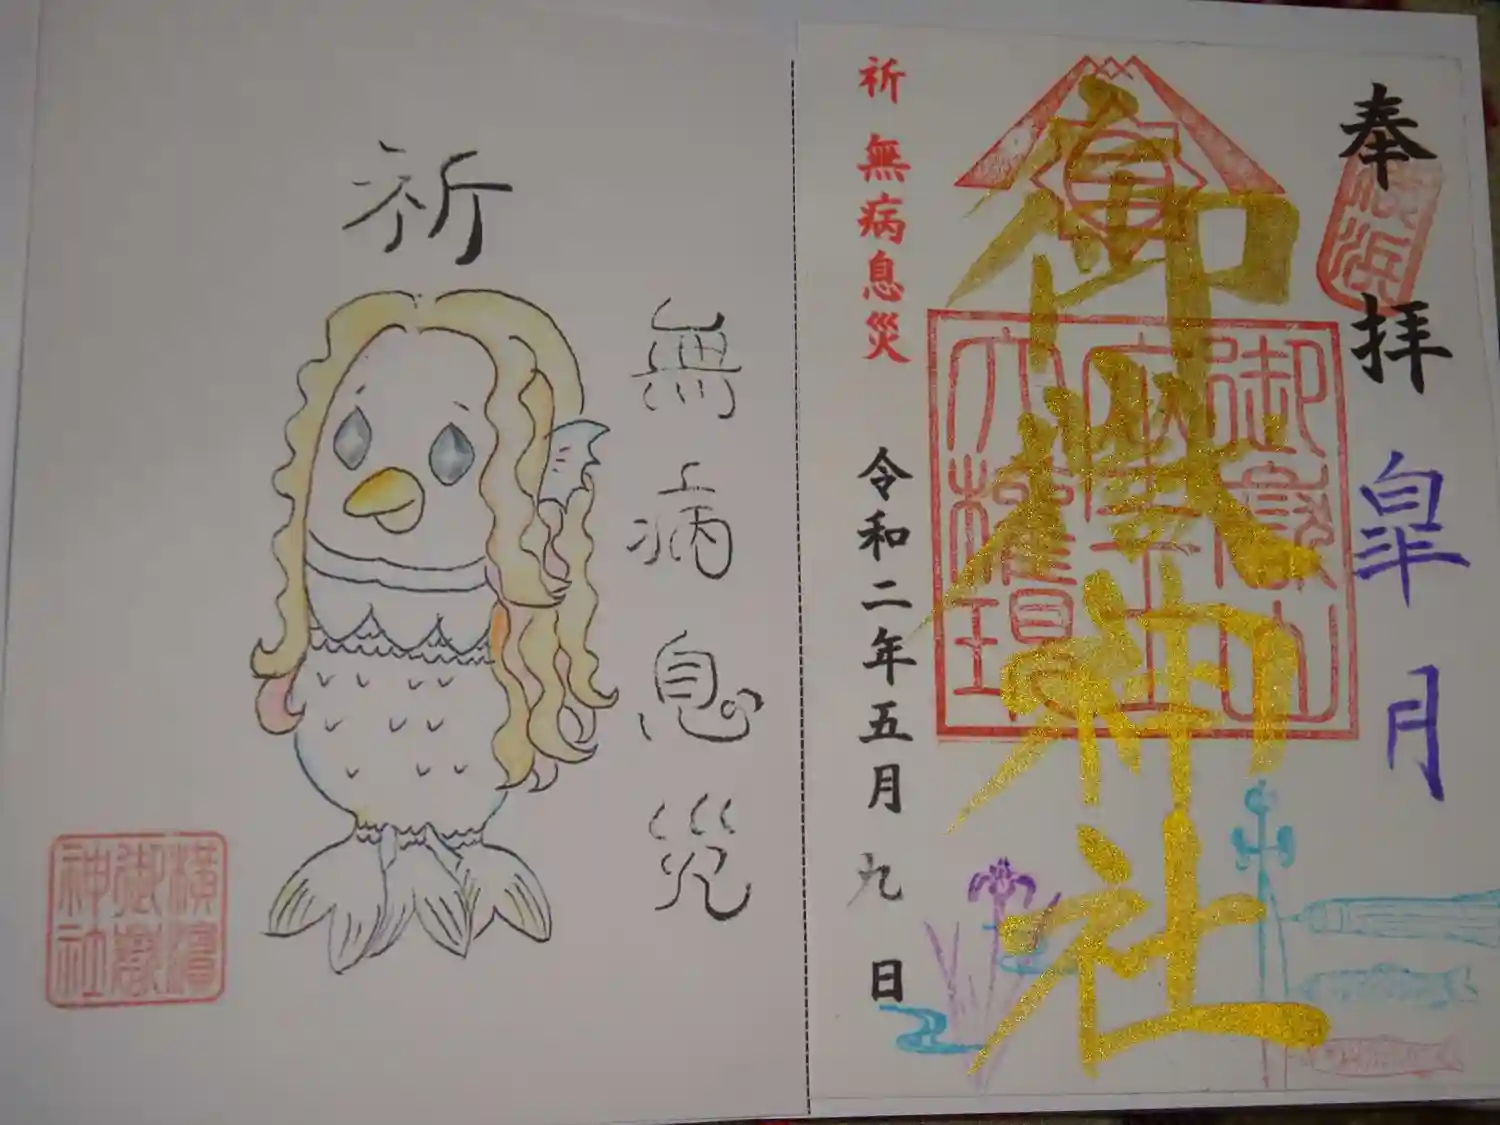 奉拝
皐月
横浜
御嶽神社
祈 無病息災
令和二年五月九日
祈
無病息災
横濱
御嶽
神社